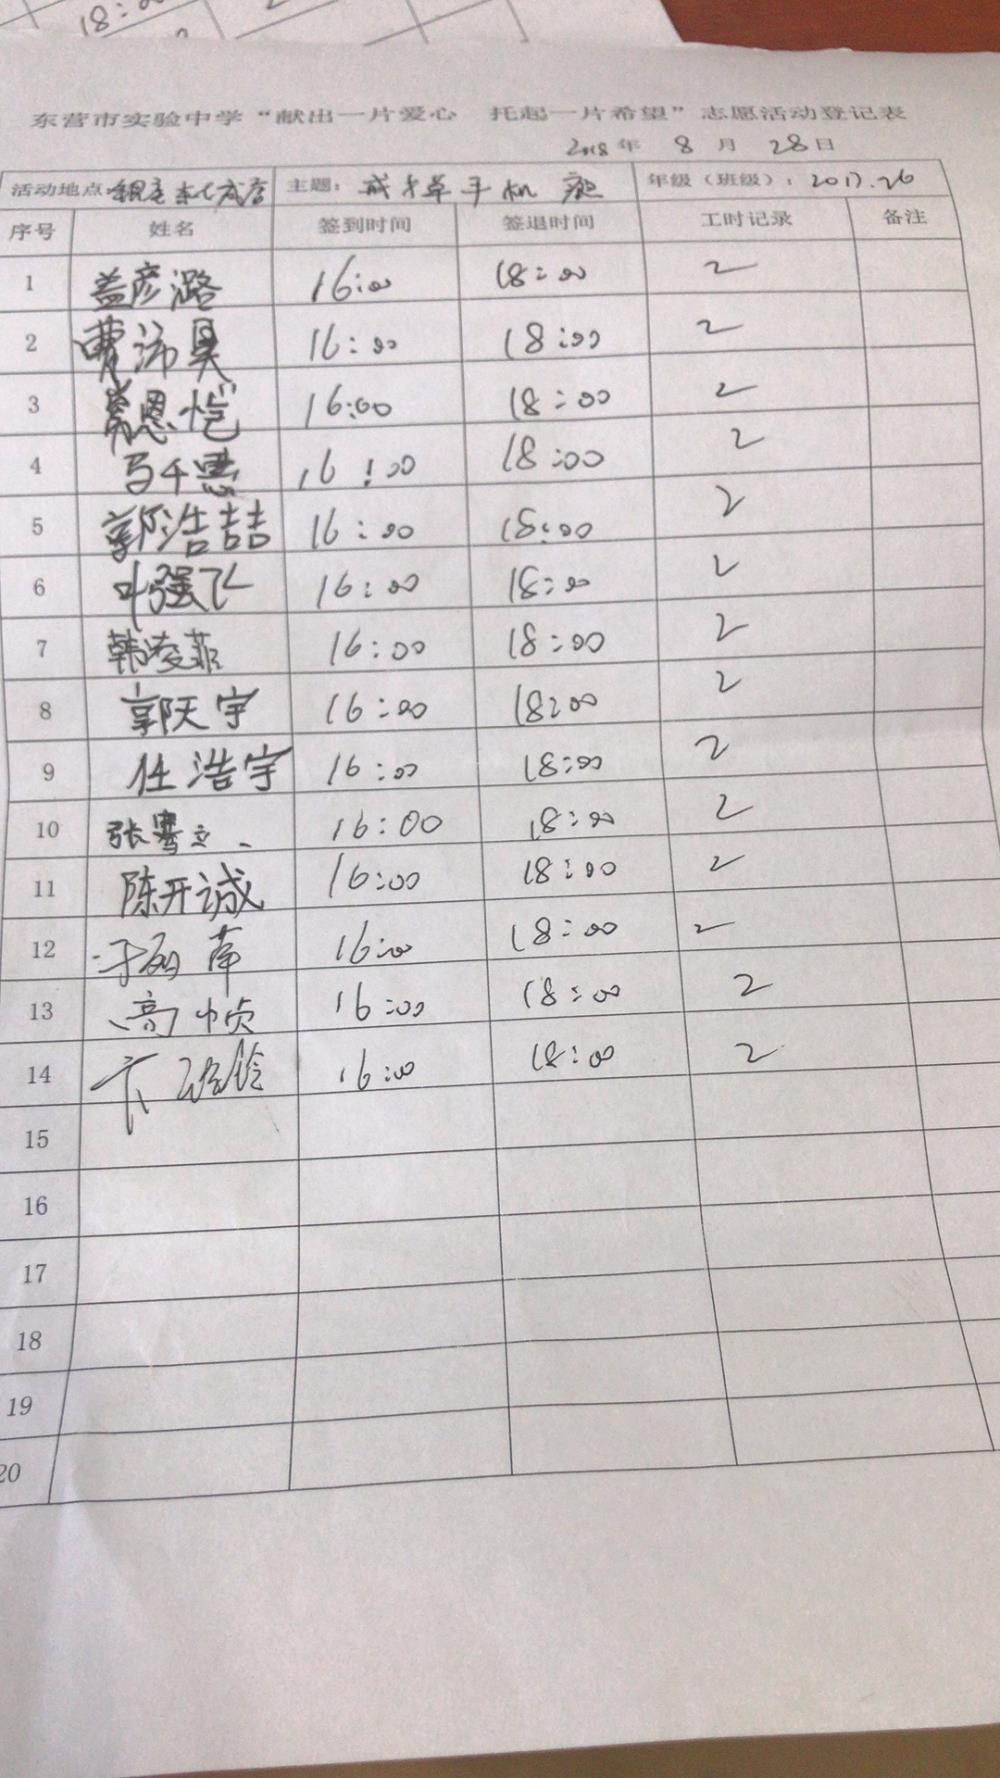 18:00
东营市实验中学“献出一片爱心 托起一片希望”志愿活动登记表
2018 年 8 月 28 日
活动地点: 银座东城店 主题: 戒 手机 年级（班级）: 2017.26
序号 姓名 签到时间 签退时间 工时记录 备注
1 盖彦潞 16:00 18:00 2
2 曹沛昊 16:00 18:00 2
3 恩恺 16:00 18:00 2
4 马千惠 16:00 18:00 2
5 郭浩喆 16:00 18:00 2
6 叶强飞 16:00 18:00 2
7 韩凌菲 16:00 18:00 2
8 郭天宇 16:00 18:00 2
9 任浩宇 16:00 18:00 2
10 张骞文 16:00 18:00 2
11 陈开诚 16:00 18:00 2
12 16:00 18:00 2
13 高帧 16:00 18:00 2
14 16:00 18:00 2
15
16
17
18
19
20